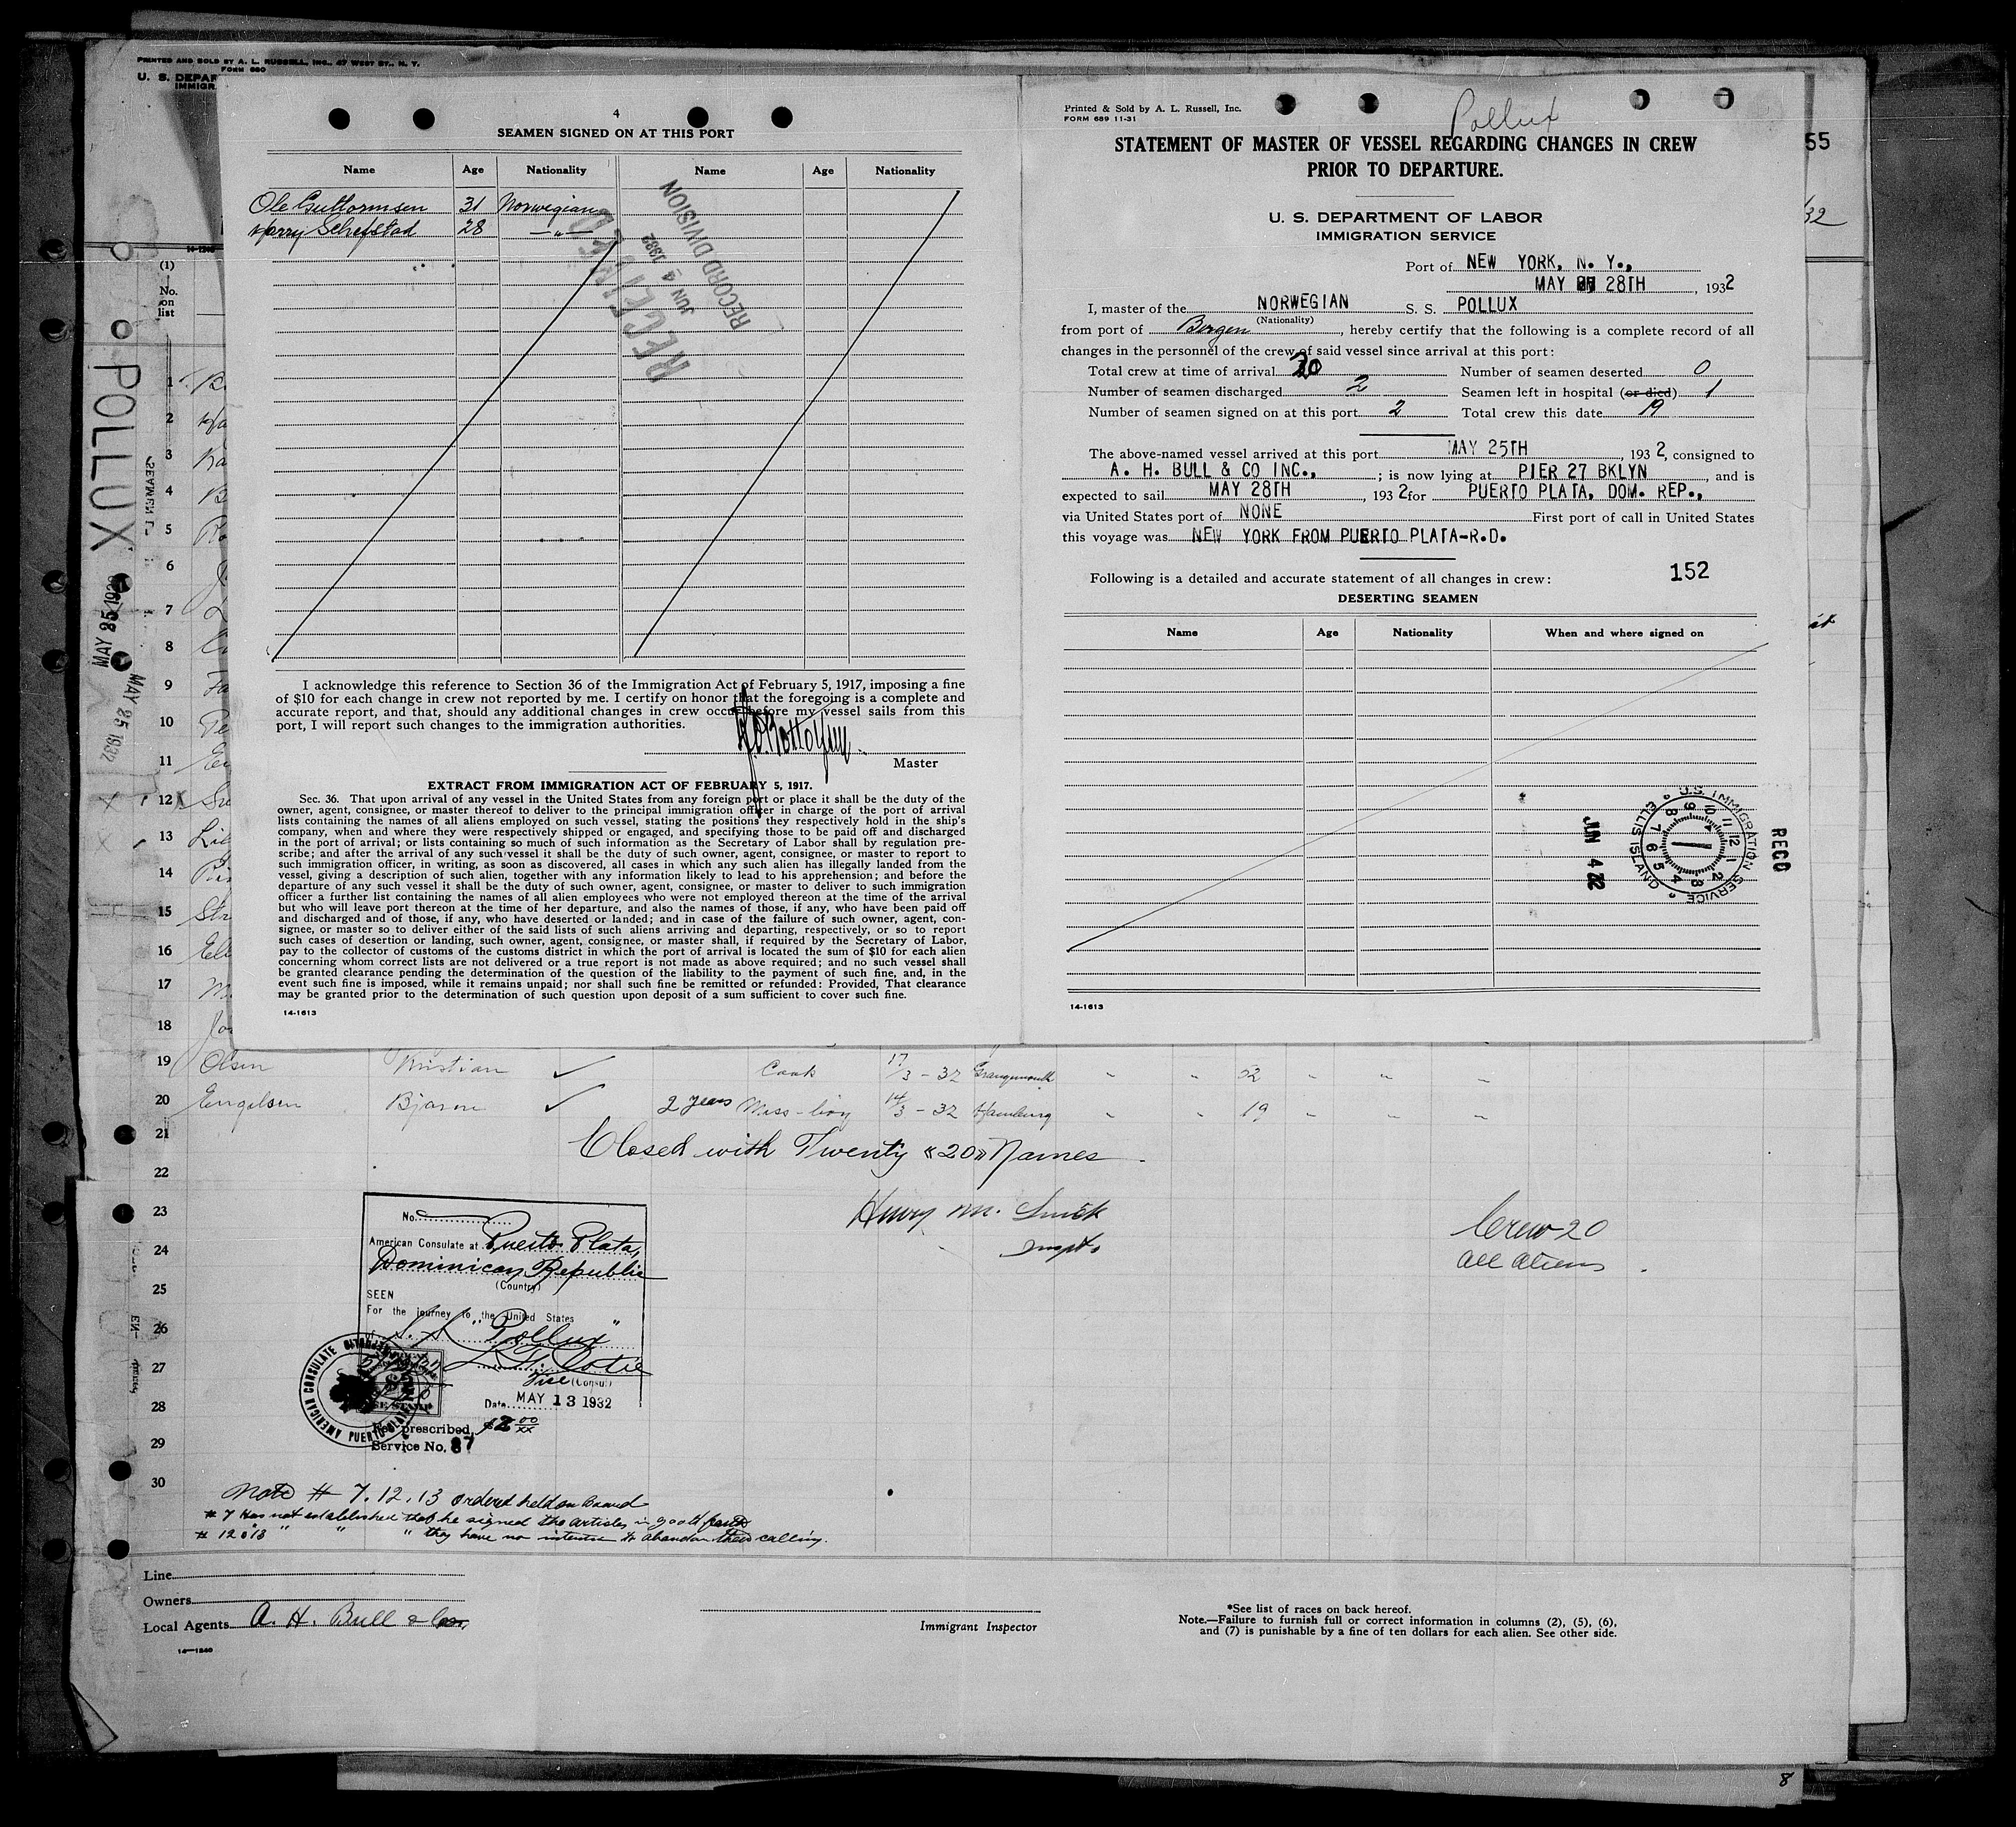 PRINTED AND SOLD BY A. L. RUSSELL, INC., 47 WEST ST., N. Y.
FORM 680
U. S. DEPAR
IMMIGR
4
SEAMEN SIGNED ON AT THIS PORT
Name Age Nationality Name Age Nationality
Ole Guttormsen 31 Norwegian
Harry Schefstad 28 — " —
RECEIVED
JUN 4 1932
RECORD DIVISION
I acknowledge this reference to Section 36 of the Immigration Act of February 5, 1917, imposing a fine
of $10 for each change in crew not reported by me. I certify on honor that the foregoing is a complete and
accurate report, and that, should any additional changes in crew occur before my vessel sails from this
port, I will report such changes to the immigration authorities.
Master
EXTRACT FROM IMMIGRATION ACT OF FEBRUARY 5, 1917.
Sec. 36. That upon arrival of any vessel in the United States from any foreign port or place it shall be the duty of the
owner, agent, consignee, or master thereof to deliver to the principal immigration officer in charge of the port of arrival
lists containing the names of all aliens employed on such vessel, stating the positions they respectively hold in the ship's
company, when and where they were respectively shipped or engaged, and specifying those to be paid off and discharged
in the port of arrival; or lists containing so much of such information as the Secretary of Labor shall by regulation pre-
scribe; and after the arrival of any such vessel it shall be the duty of such owner, agent, consignee, or master to report to
such immigration officer, in writing, as soon as discovered, all cases in which any such alien has illegally landed from the
vessel, giving a description of such alien, together with any information likely to lead to his apprehension; and before the
departure of any such vessel it shall be the duty of such owner, agent, consignee, or master to deliver to such immigration
officer a further list containing the names of all alien employees who were not employed thereon at the time of the arrival
but who will leave port thereon at the time of her departure, and also the names of those, if any, who have been paid off
and discharged and of those, if any, who have deserted or landed; and in case of the failure of such owner, agent, con-
signee, or master so to deliver either of the said lists of such aliens arriving and departing, respectively, or so to report
such cases of desertion or landing, such owner, agent, consignee, or master shall, if required by the Secretary of Labor,
pay to the collector of customs of the customs district in which the port of arrival is located the sum of $10 for each alien
concerning whom correct lists are not delivered or a true report is not made as above required; and no such vessel shall
be granted clearance pending the determination of the question of the liability to the payment of such fine, and, in the
event such fine is imposed, while it remains unpaid; nor shall such fine be remitted or refunded: Provided, That clearance
may be granted prior to the determination of such question upon deposit of a sum sufficient to cover such fine.
14-1613
Printed & Sold by A. L. Russell, Inc.
FORM 689 11-31
Pollux
STATEMENT OF MASTER OF VESSEL REGARDING CHANGES IN CREW
PRIOR TO DEPARTURE.
U. S. DEPARTMENT OF LABOR
IMMIGRATION SERVICE
Port of NEW YORK, N. Y.,
MAY 28TH, 1932
I, master of the NORWEGIAN S. S. POLLUX
(Nationality)
from port of Bergen, hereby certify that the following is a complete record of all
changes in the personnel of the crew of said vessel since arrival at this port:
Total crew at time of arrival 20 Number of seamen deserted 0
Number of seamen discharged 2 Seamen left in hospital (or died) 1
Number of seamen signed on at this port 2 Total crew this date 19
The above-named vessel arrived at this port MAY 25TH, 1932, consigned to
A. H. BULL & CO INC., ; is now lying at PIER 27 BKLYN, and is
expected to sail MAY 28TH, 1932 for PUERTO PLATA, DOM. REP.,
via United States port of NONE First port of call in United States
this voyage was NEW YORK FROM PUERTO PLATA-R.D.
152
Following is a detailed and accurate statement of all changes in crew:
DESERTING SEAMEN
Name Age Nationality When and where signed on
U.S. IMMIGRATION SERVICE
ELLIS ISLAND
JUN 4 32
RECD
14-1613
55
32
14-1240
(1)
No.
on
list
POLLUX
MAY 25 1932
MAY 25 1932
1
2
3
4
5
6
7
8
9
10
11
12
13
14
15
16
17
18
19 Olsen Kristian Cook 17/3 - 32 Grangemouth " " 52 " " "
20 Engelsen Bjarne 2 years Mess-boy 14/3 - 32 Hamburg " " 19 " " "
21
Closed with Twenty «20» Names
22
23
24
25
26
27
28
29
30
Henry M. Smick
Inspt.
Crew 20
all aliens
No.
American Consulate at Puerto Plata,
Dominican Republic
(Country)
SEEN
For the journey to the United States
of S.S. "Pollux"
Vice (Consul)
Date MAY 13 1932
AMERICAN CONSULATE PUERTO PLATA
Fee prescribed, $2 00/xx
Service No. 87
Note # 7. 12. 13 ordered held on board
# 7 Has not established that he signed the articles in good faith
# 12 & 13 " " " they have no intention to abandon their calling.
Line
Owners
Local Agents A. H. Bull & Co.
14-1240
Immigrant Inspector
*See list of races on back hereof.
Note.—Failure to furnish full or correct information in columns (2), (5), (6),
and (7) is punishable by a fine of ten dollars for each alien. See other side.
8